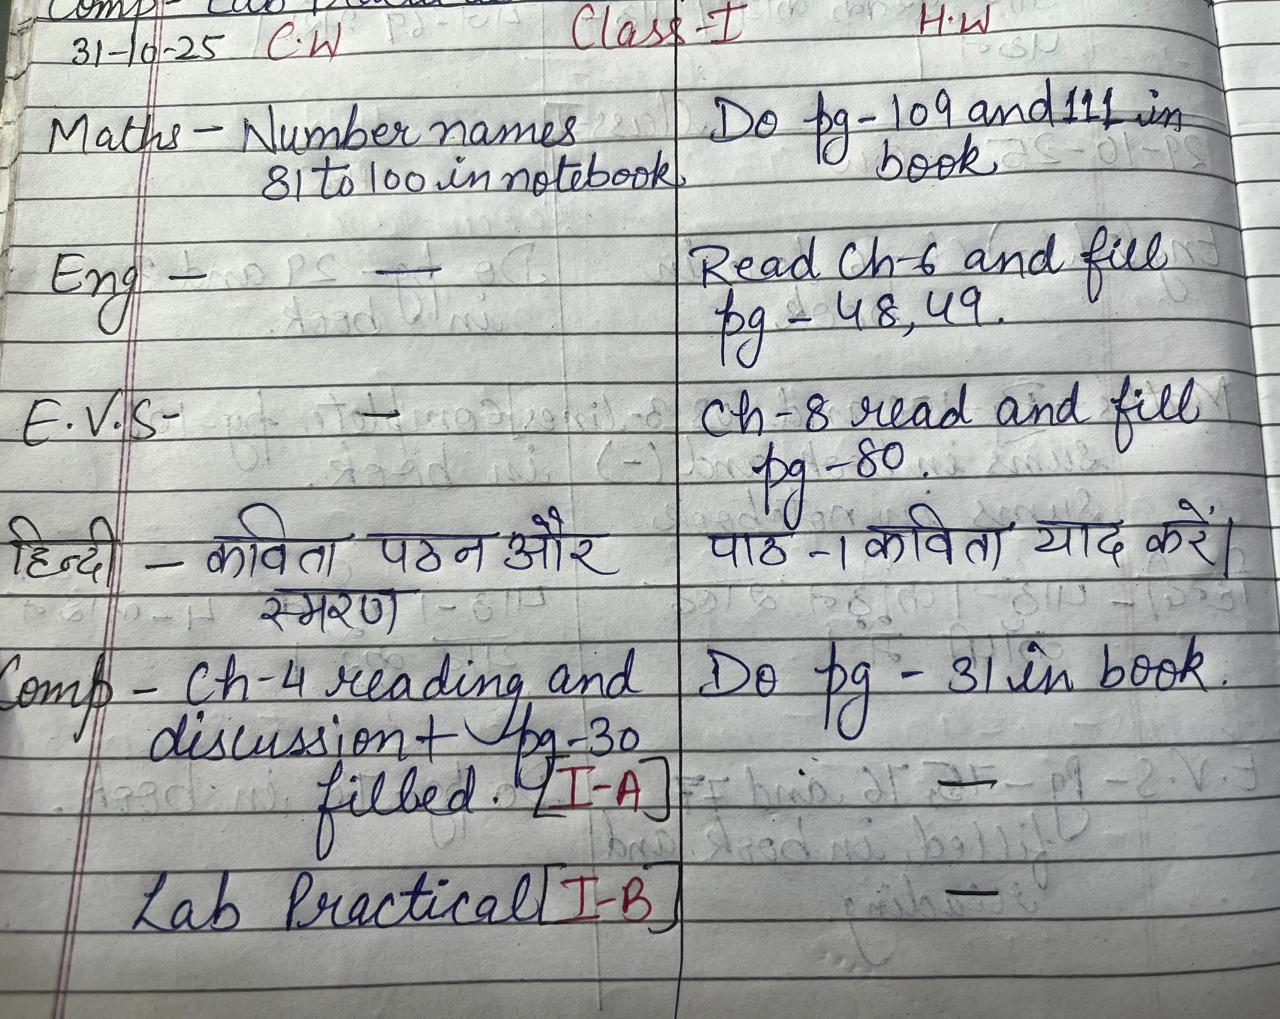 Comp - Lab Practical
31-10-25 C.W Class-I H.W
Maths - Number names
81 to 100 in notebook.
Do pg - 109 and 111 in
book.
Eng - —
Read Ch-6 and fill
pg - 48, 49.
E.V.S- —
Ch-8 read and fill
pg - 80.
हिन्दी - कविता पठन और
स्मरण
पाठ -1 कविता याद करें।
Comp - Ch-4 reading and
discussion + pg-30
filled. [I-A]
Do pg - 31 in book.
—
Lab Practical [I-B]
—